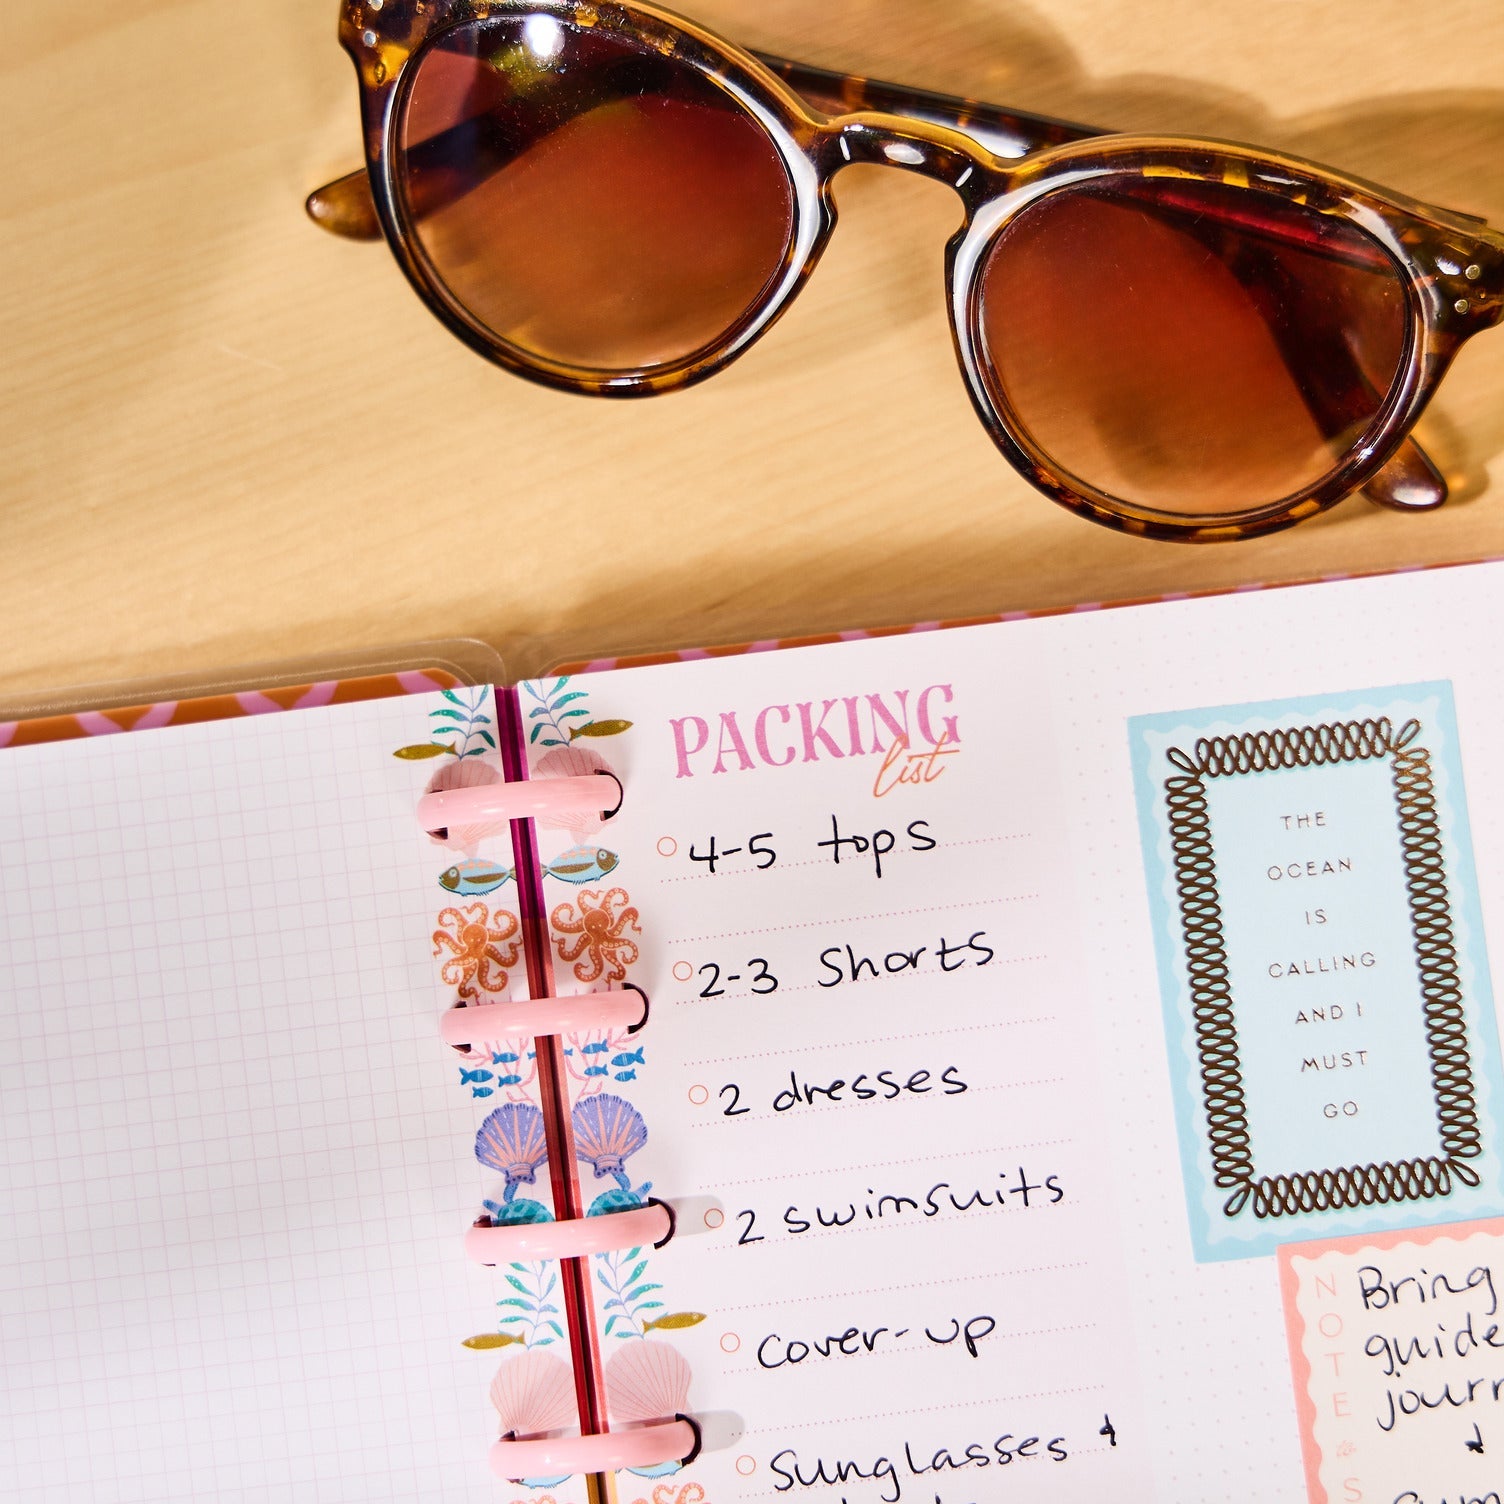 PACKING
list
4-5 tops
2-3 Shorts
2 dresses
2 swimsuits
cover-up
Sunglasses &
THE
OCEAN
IS
CALLING
AND I
MUST
GO
NOTES
Bring
guide
journ
&